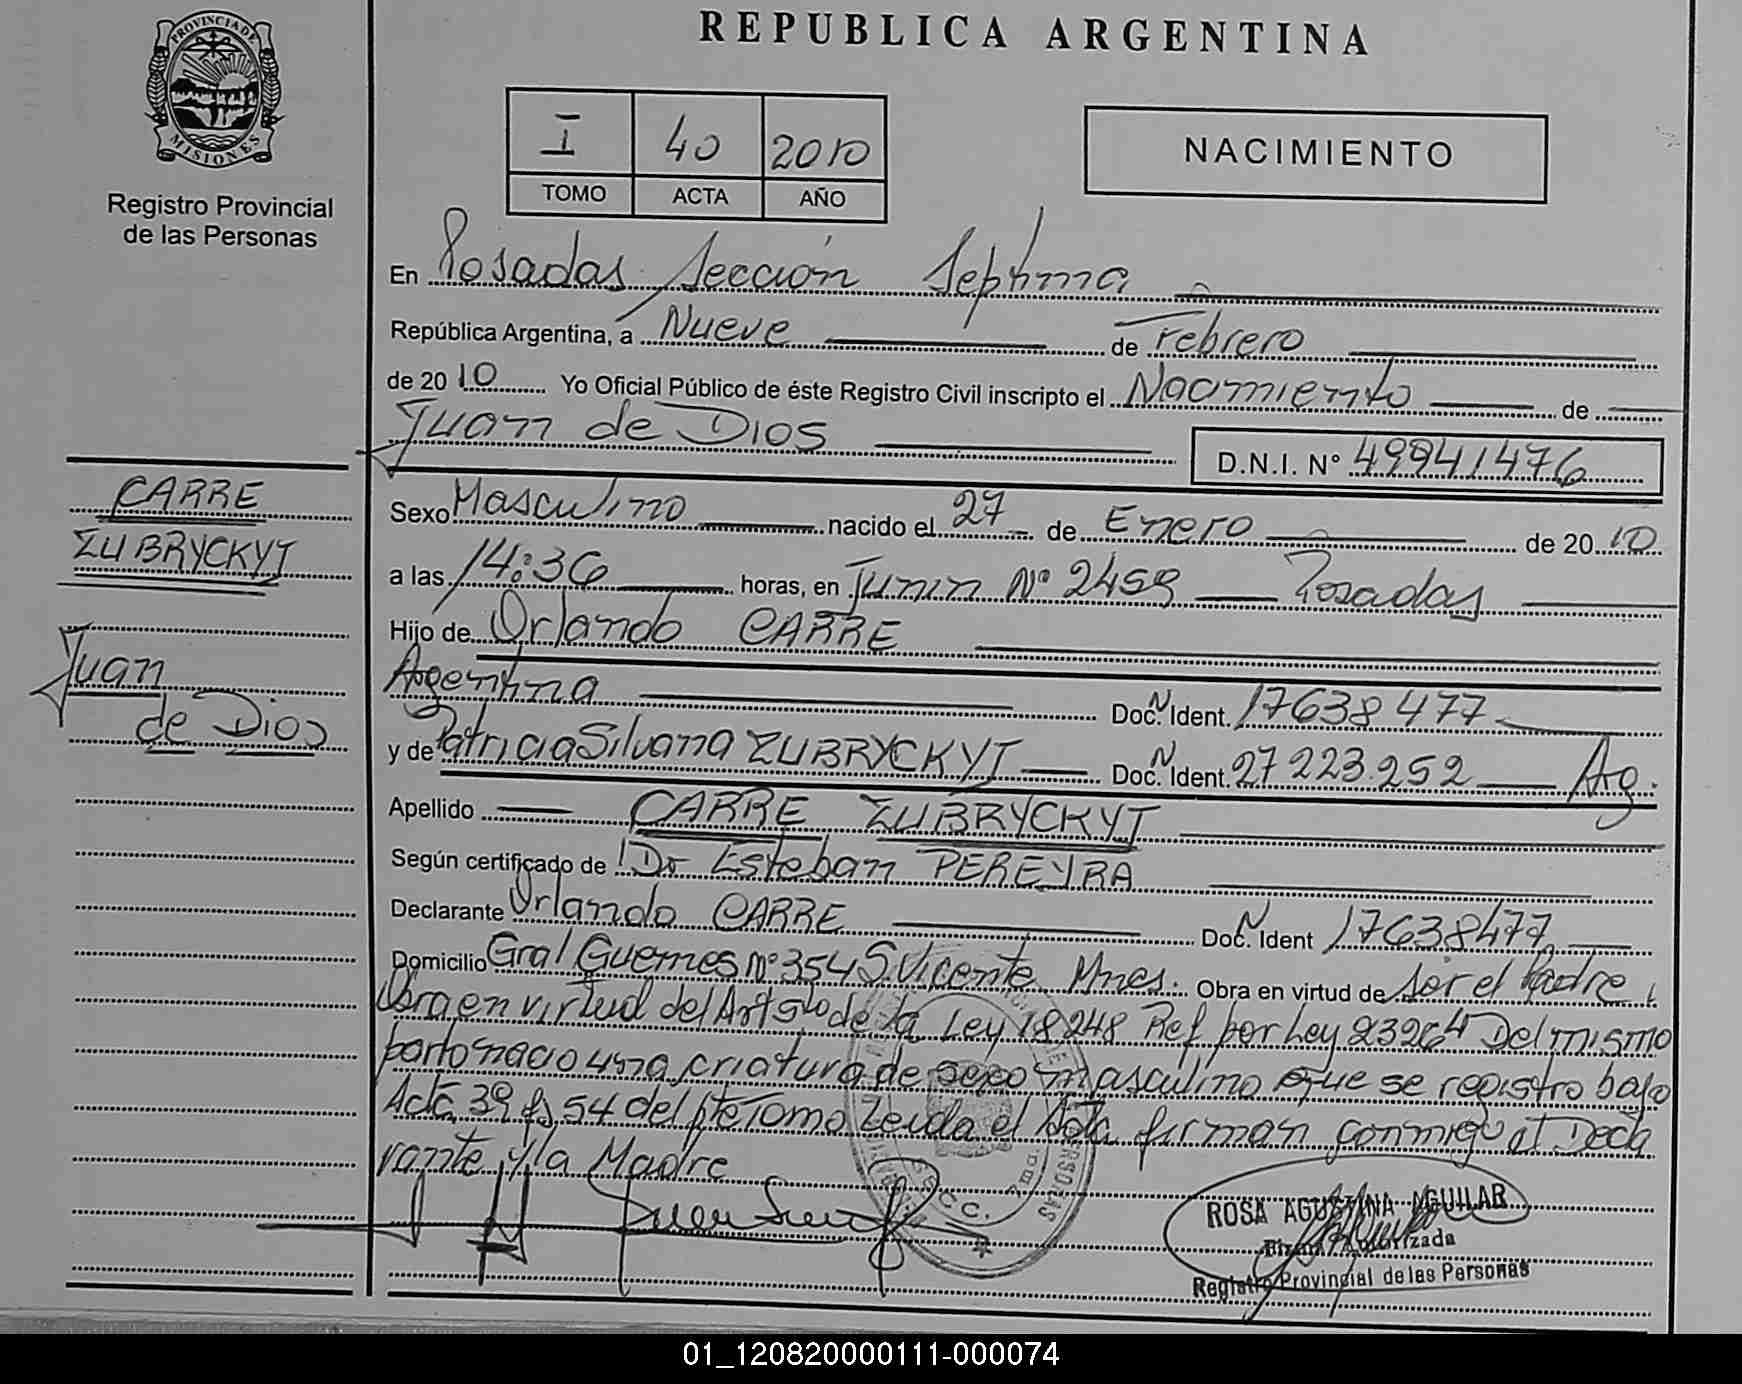 REPUBLICA ARGENTINA
PROVINCIA DE
MISIONES
Registro Provincial
de las Personas
I 40 2010
TOMO ACTA AÑO
NACIMIENTO
En Posadas Sección Septima
República Argentina, a Nueve de Febrero
de 2010 Yo Oficial Público de éste Registro Civil inscripto el Nacimiento de
Juan de Dios
D.N.I. N° 49941476
CARRE
ZUBRYCKYJ
Juan
de Dios
Sexo Masculino nacido el 27 de Enero de 2010
a las 14:36 horas, en Junin Nº 2459 Posadas
Hijo de Orlando CARRE
Argentina Doc. N Ident. 17638477
y de Patricia Silvana ZUBRYCKYJ Doc. N Ident. 27 223.252 Arg.
Apellido CARRE ZUBRYCKYJ
Según certificado de Dr Esteban PEREYRA
Declarante Orlando CARRE Doc. N Ident 17638477
Domicilio Gral Guemes Nº 354 S. Vicente Mnes. Obra en virtud de ser el Padre
Obra en virtud del Art 5to de la Ley 18248 Ref por Ley 23264 Del mismo
parto nacio una criatura de sexo masculino que se registro bajo
Acta 39 fs 54 del pte Tomo Leida el Acta firman conmigo el Decla
rante y la Madre
ROSA AGUSTINA AGUILAR
Firma Autorizada
Registro Provincial de las Personas
01_120820000111-000074